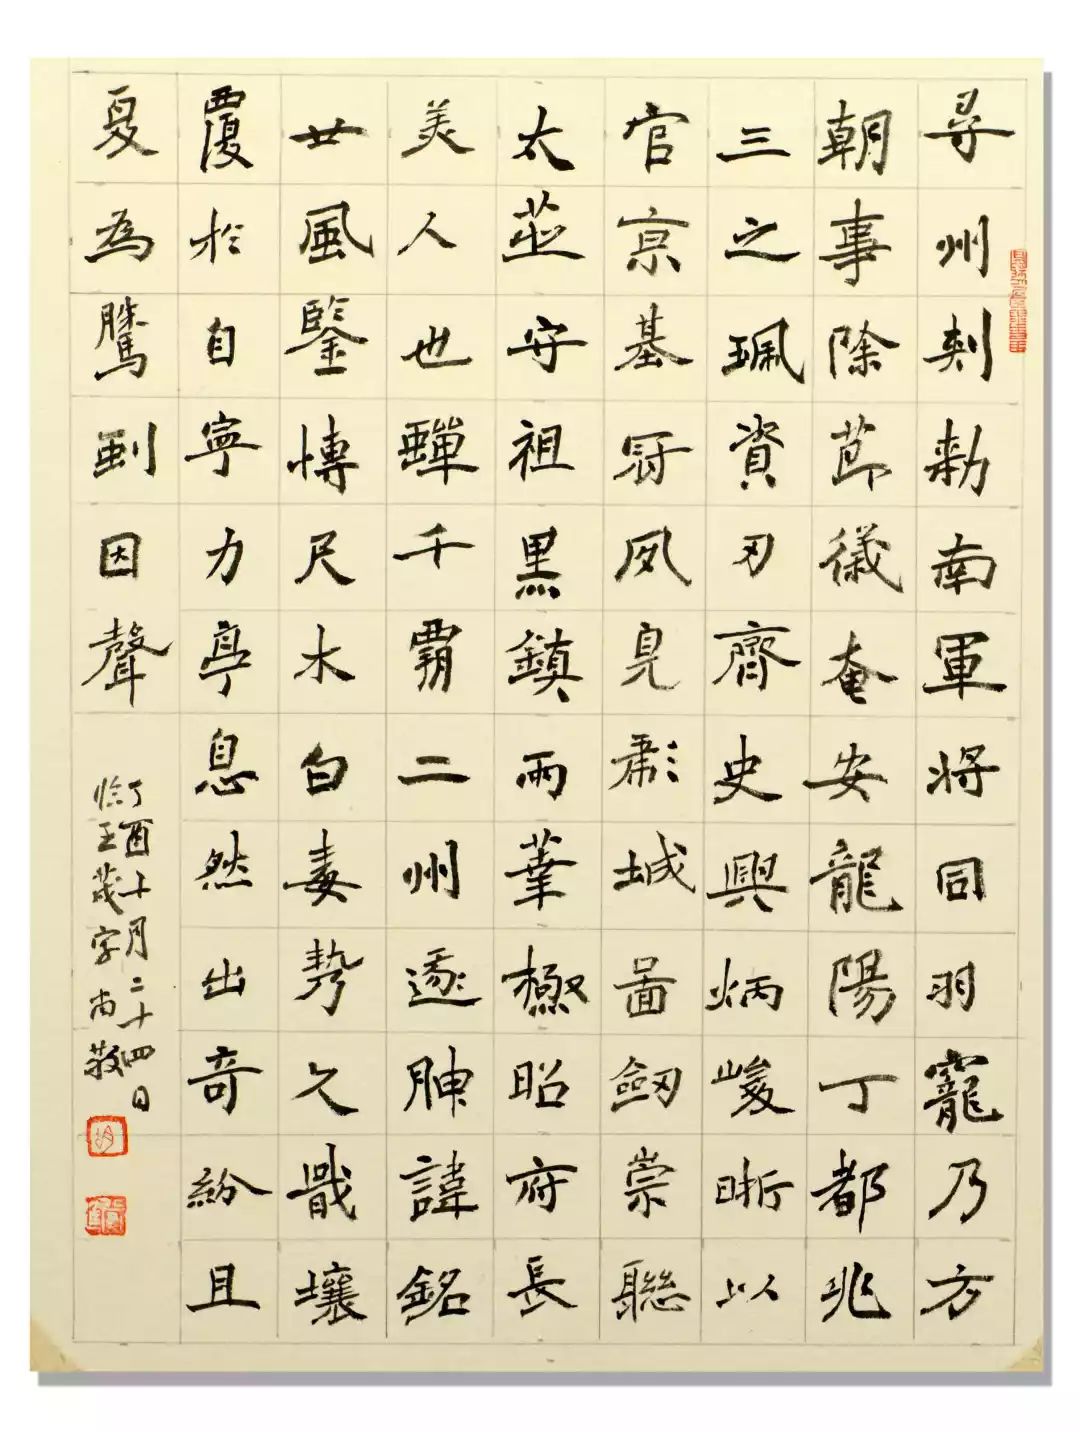 尋州刺勑南軍將同羽寵乃方
朝事除莭儀奄安龍陽丁都兆
三之珮資刃齊史興炳峻晣以
官京基冠夙見彨城啚劒崇聰
太莁守祖黑鎮兩葦極昭府長
美人也千霸二州遂肿諱銘
廿風鑒博尺木白毒勢久戢壤
覆於自寧力亭息然出奇紛且
夏為騰到因聲
丁酉十月二十四日
臨王茂字尚敬